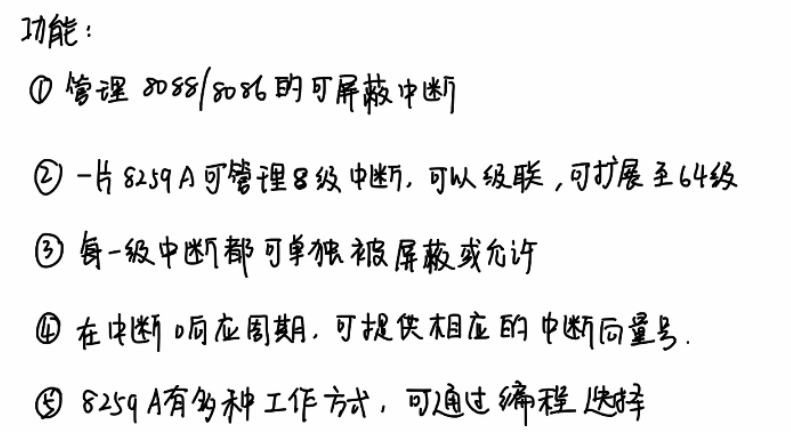 功能：
① 管理 8088/8086的可屏蔽中断
② 一片 8259A可管理8级中断，可以级联，可扩展至64级
③ 每一级中断都可单独被屏蔽或允许
④ 在中断响应周期，可提供相应的中断向量号.
⑤ 8259A有多种工作方式，可通过编程选择